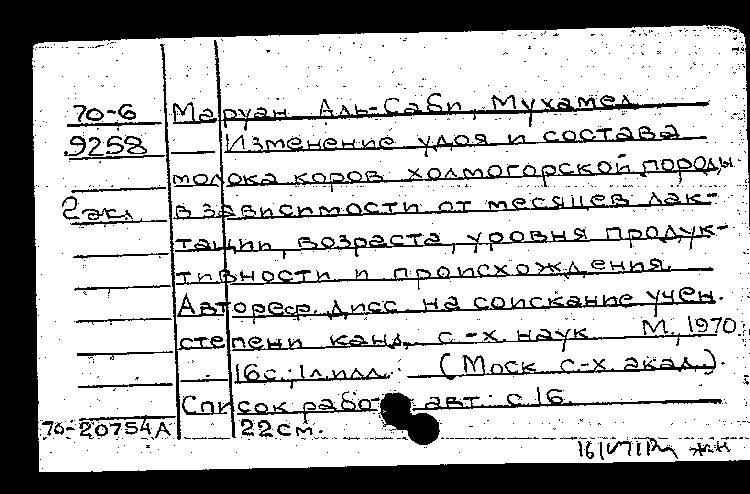 70-6 Маруан Аль-Саби, Мухамед
9258 Изменение удоя и состава
молока коров холмогорской породы
2 экз. в зависимости от месяцев лак-
тации, возраста, уровня продук-
тивности и происхождения.
Автореф. дисс. на соискание учен.
степени канд. с.-х. наук М., 1970.
16с.; 1л.илл. (Моск. с-х. акад.)
Список работ авт. с 16.
70-20754А 22см.